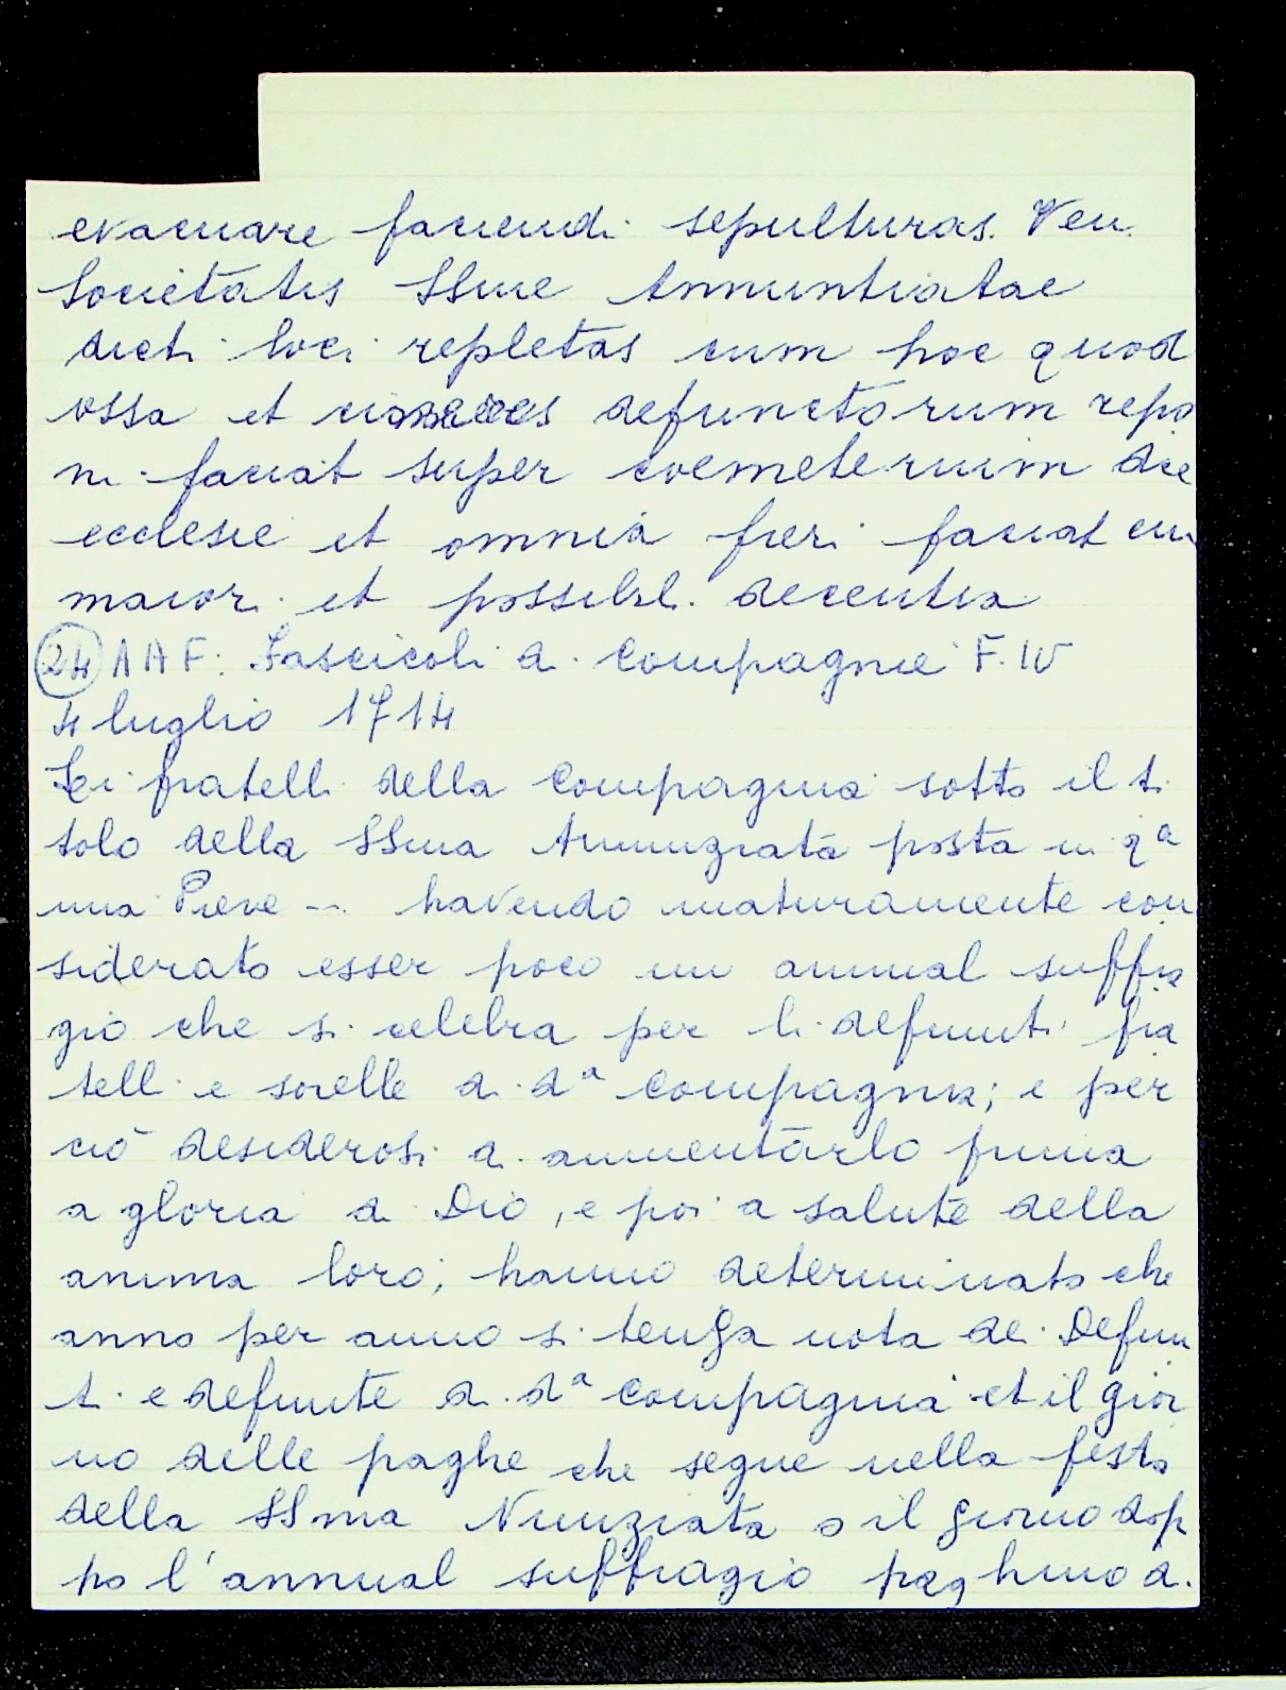 evacuare faciendi sepulturas Ven.
Societatis SSme Annuntiatae
dicti loci repletas cum hoc quod
ossa et defunctorum repo
ni faciat super coemeterium die
ecclesie et omnia fieri faciat cu
maiori et possibil. decentia
24 AAF. Fascicoli di Compagnie F. IV
4 luglio 1714
Li fratelli della Compagnia sotto il ti
tolo della SSma Annunziata posta in qª
mia Pieve -- havendo maturamente con
siderato esser poco un annual suffra
gio che si celebra per li defunti fra
telli e sorelle di dª Compagnia; e per
ciò desiderosi di aumentarlo prima
a gloria di Dio, e poi a salute della
anima loro; hanno determinato che
anno per anno si tenga nota dei Defun
ti e defunte di dª Compagnia et il gior
no delle paghe che segue nella festa
della SSma Nunziata o il giorno dop
po l'annual suffragio paghino di